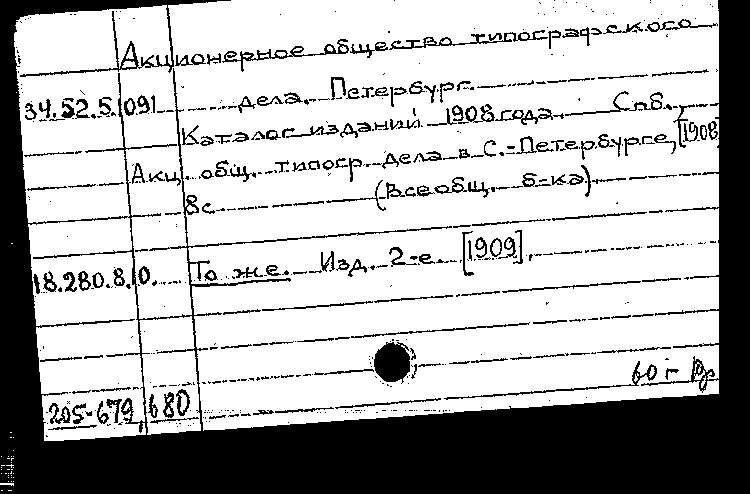 Акционерное общество типографского
34.52.5.091 дела. Петербург.
Каталог изданий 1908 года. Спб.,
Акц. общ. типогр. дела в С.-Петербурге, [1908
8с. (Всеобщ. б-ка)
18.280.8.0. То же. Изд. 2-е. [1909].
60 г
205-679,680